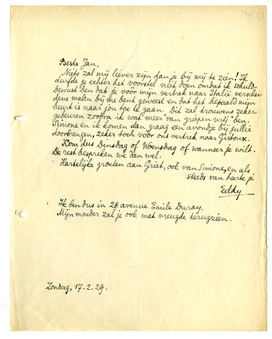 Beste Jan,
Niets zal mij liever zijn dan je bij mij te zien! Ik
durfde je echter het voorstel niet doen omdat ik schuld-
bewust ben dat je vóór mijn vertrek naar Italië verschei-
dene malen bij me bent geweest en dat het bepaald mijn
beurt is naar jou toe te gaan. Dit zal trouwens zeker
gebeuren zoodra ik wat meer van griepen vrij ben.
Simone en ik komen dan graag een avondje bij jullie
doorbrengen, zeker toch vóór ons vertrek naar Gistoux.
Kom dus Dinsdag of Woensdag of wanneer je wilt.
De rest bespreken we dan wel.
Hartelijke groeten aan Griet, ook van Simone, en als
steeds van harte je
Eddy
Ik ben dus in 28 avenue Emile Duray.
Mijn moeder zal je ook met vreugde terugzien.
Zondag, 17.2.29.